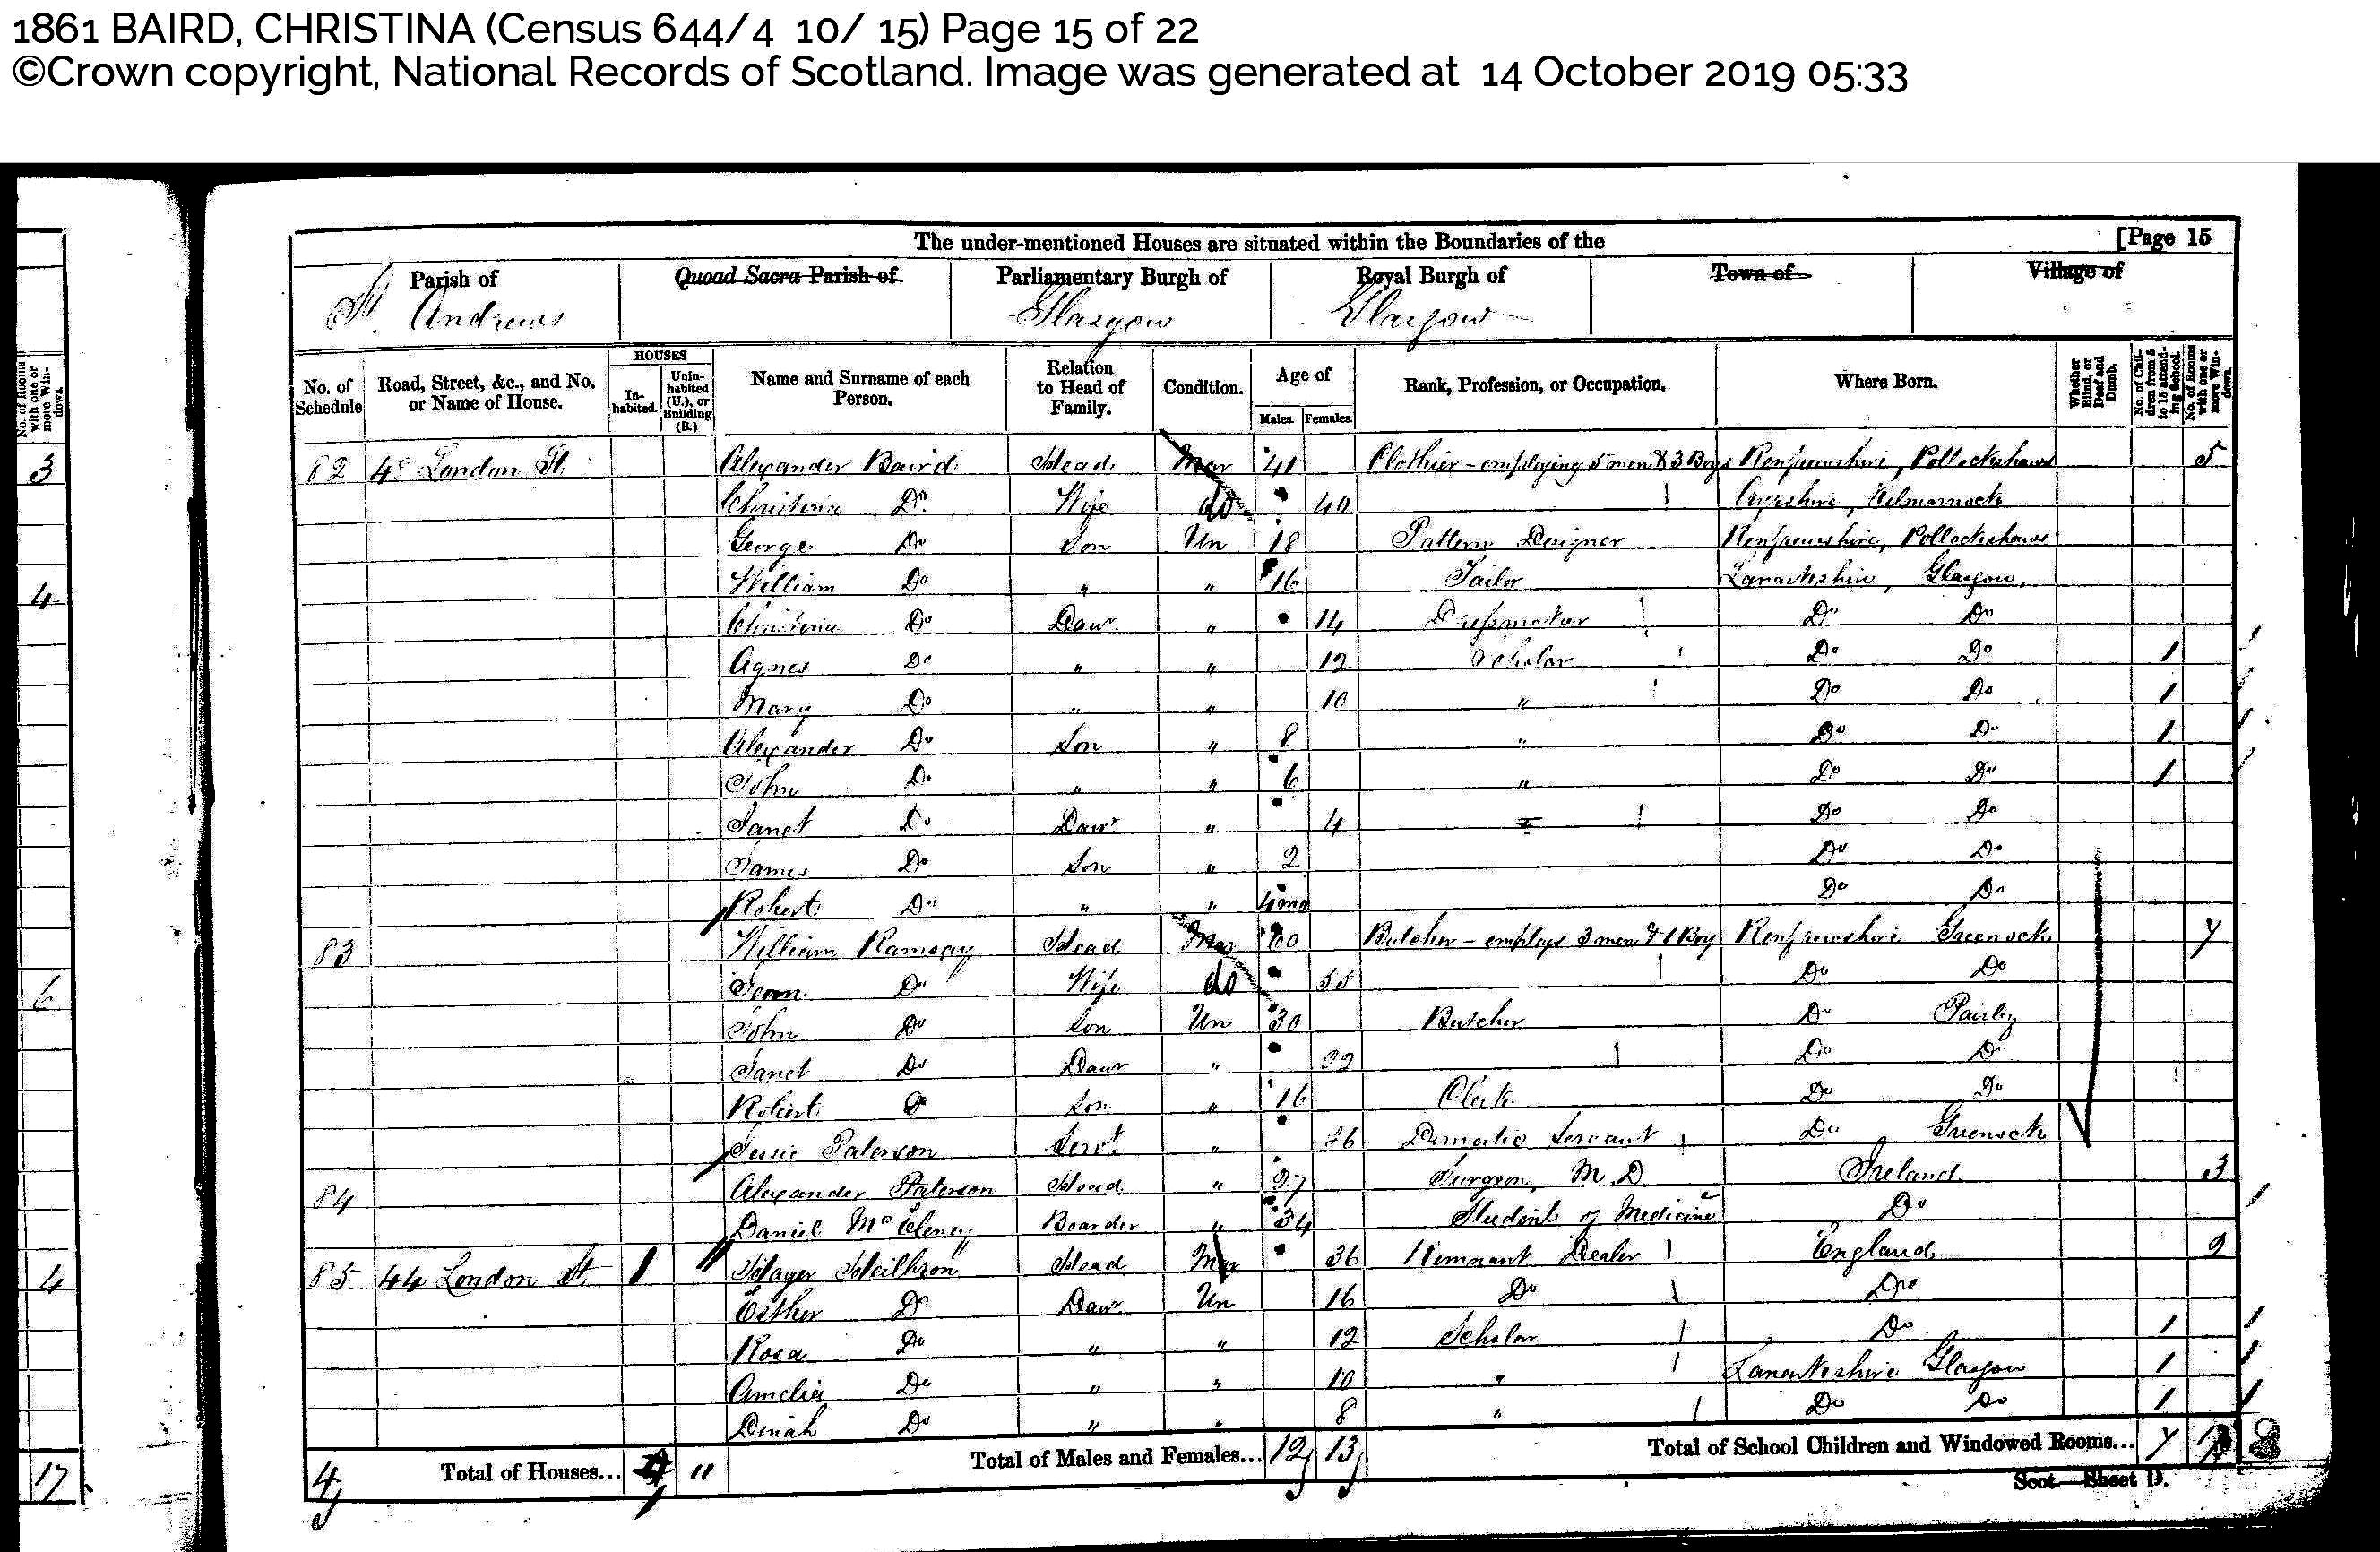 1861 BAIRD, CHRISTINA (Census 644/4 10/ 15) Page 15 of 22
©Crown copyright, National Records of Scotland. Image was generated at 14 October 2019 05:33
The under-mentioned Houses are situated within the Boundaries of the [Page 15
Parish of Quoad Sacra Parish of Parliamentary Burgh of Royal Burgh of Town of Village of
St. Andrews Glasgow Glasgow
No. of Schedule Road, Street, &c., and No. or Name of House. HOUSES Inhabited. Uninhabited (U.), or Building (B.) Name and Surname of each Person. Relation to Head of Family. Condition. Age of Males. Females. Rank, Profession, or Occupation. Where Born. Whether Blind, or Deaf and Dumb. No. of Children from 5 to 15 attending School. No. of Rooms with one or more Windows.
82 London St. Alexander Baird Head Mar 41 Clothier - employing 5 men & 3 Boys Renfrewshire, Pollockshaws 5
Christina Do. Wife do 40 Ayrshire, Kilmarnock
George Do Son Un 18 Pattern Designer Renfrewshire, Pollockshaws
William Do " " 16 Tailor Lanarkshire, Glasgow
Christina Do Dawr. " 14 Dressmaker Do Do
Agnes Do " " 12 Scholar Do Do 1
Mary Do " " 10 " Do Do 1
Alexander Do Son " 8 " Do Do 1
John Do " " 6 " Do Do 1
Janet Do Dawr. " 4 Do Do
James Do Son " 2 Do Do
Robert Do " " 4 mo Do Do
83 William Ramsay Head Mar 60 Butcher - employs 3 men & 1 Boy Renfrewshire Greenock 7
Jean Do Wife do 55 Do Do
John Do Son Un 30 Butcher Do Paisley
Janet Do Dawr " 22 Do Do
Robert Do Son " 16 Clerk Do Do
Jessie Paterson Servt. " 26 Domestic Servant Do Greenock
84 Alexander Paterson Head " 27 Surgeon, M.D Ireland 3
Daniel Boarder " 34 Student of Medicine Do
85 44 London St. 1 Head Mar 36 Remnant Dealer England 2
Esther Do Dawr Un 16 Do Do
Rosa Do " " 12 Scholar Do 1
Amelia Do " " 10 " Lanarkshire Glasgow 1
Dinah Do " " 8 " Do Do 1
4 Total of Houses... 1 " Total of Males and Females... 12 13 Total of School Children and Windowed Rooms... 7
Scot.—Sheet D.
No. of Rooms with one or more Windows.
3
4
6
4
17